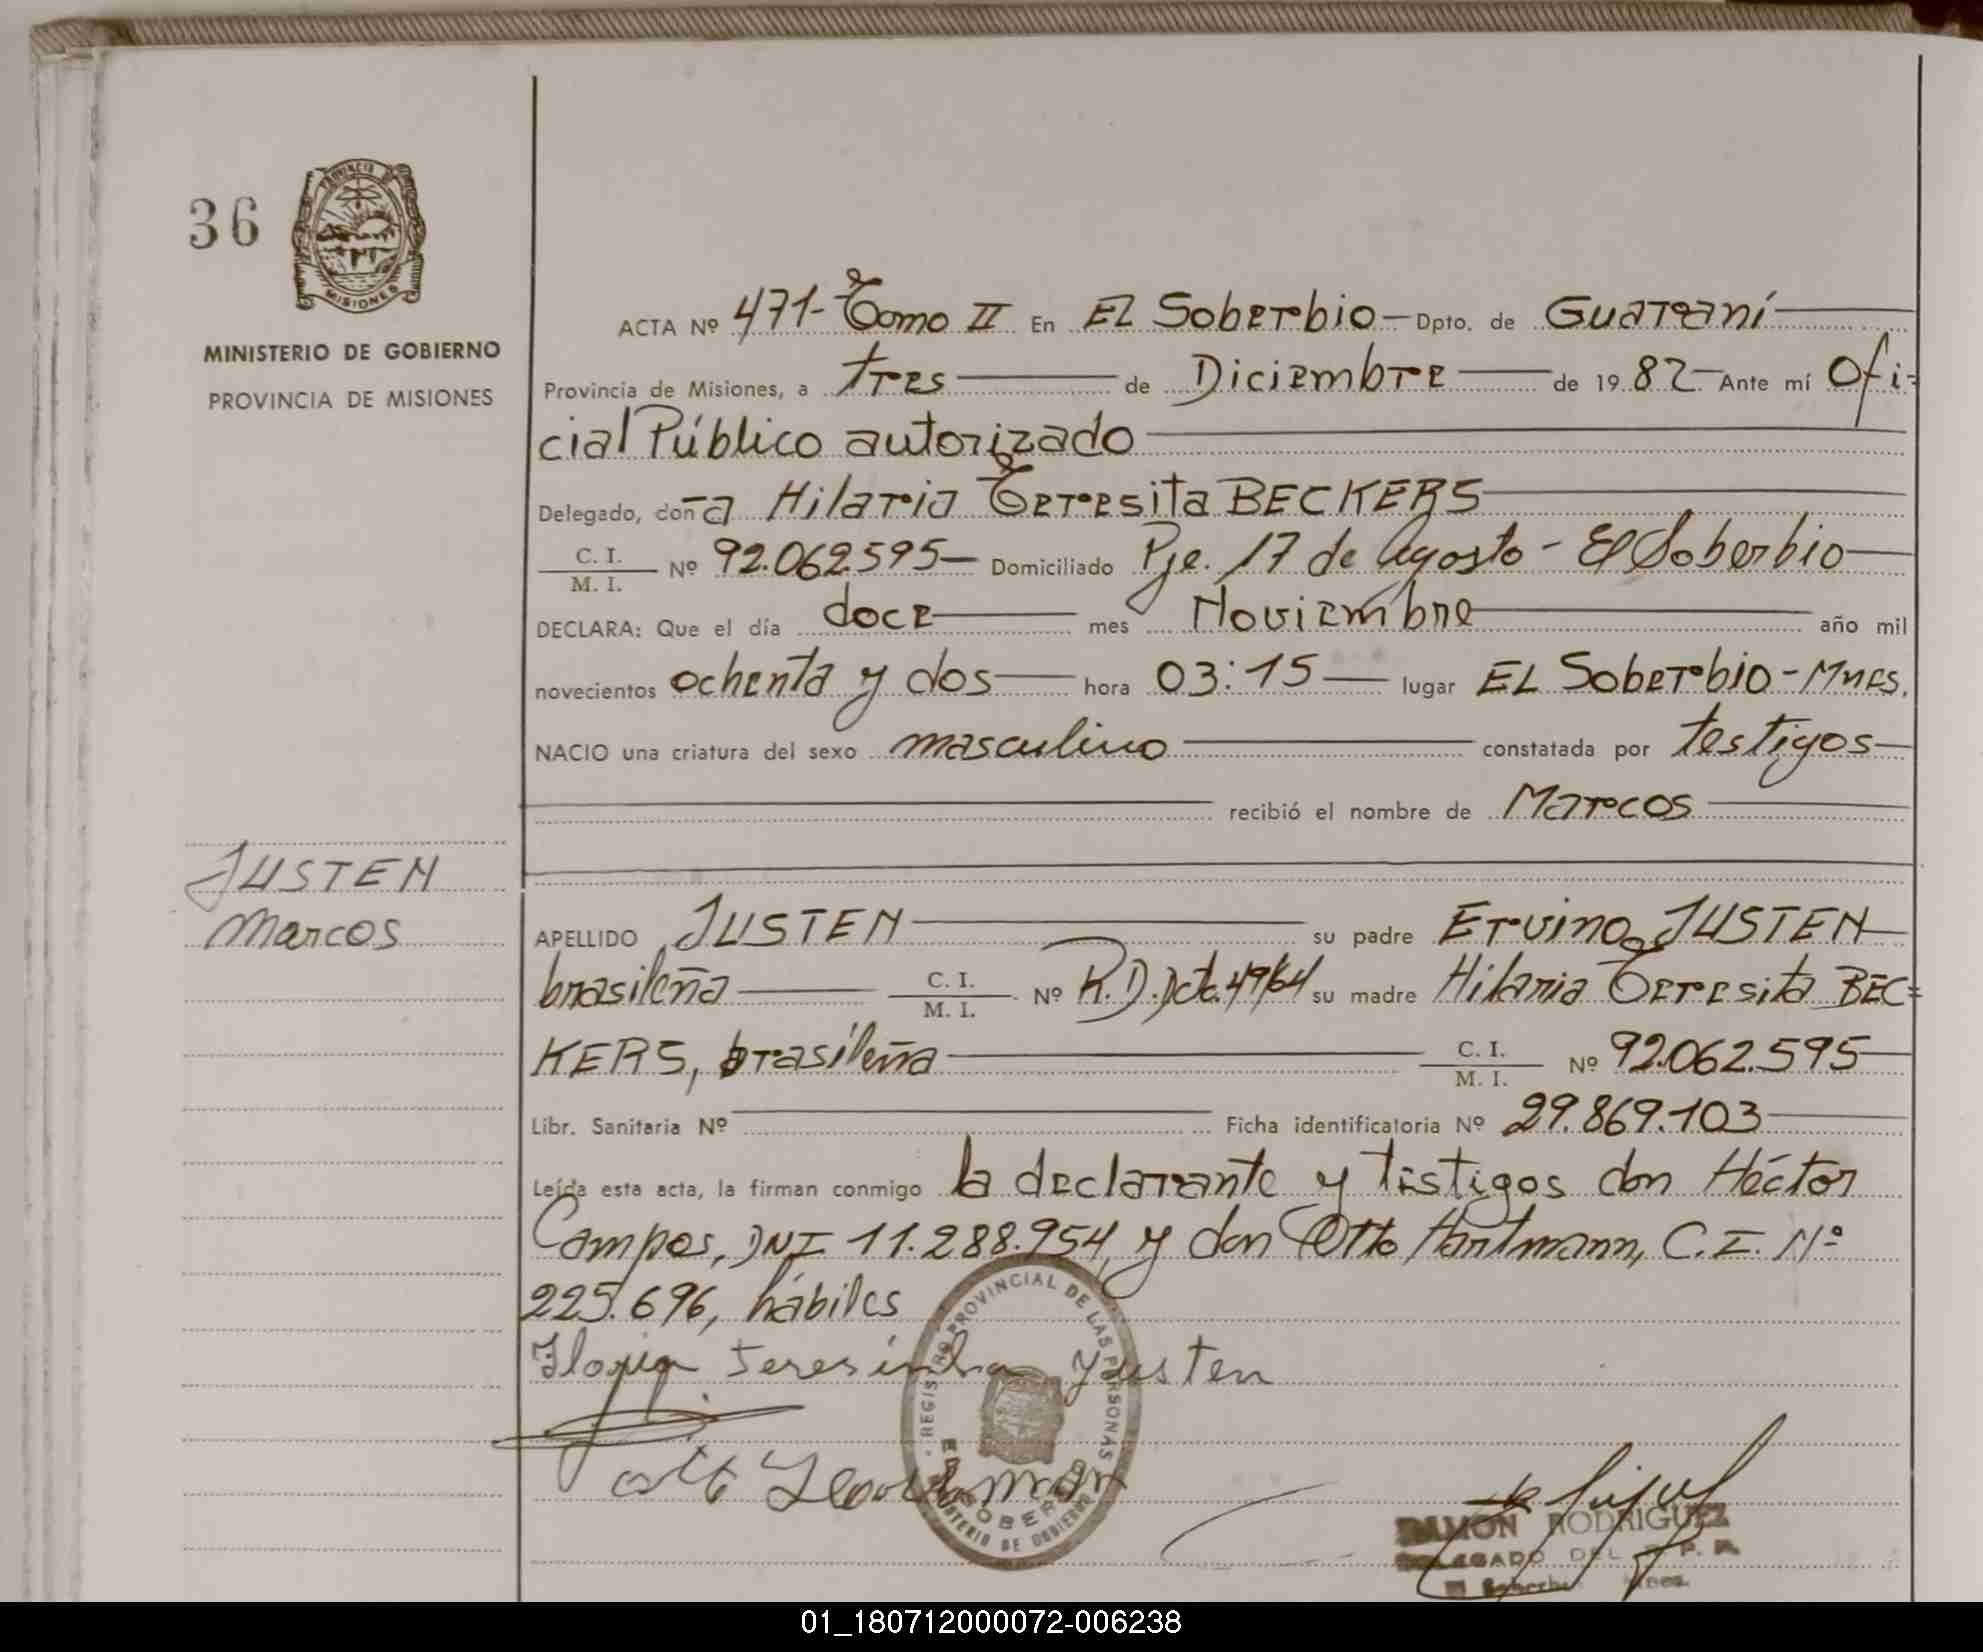 36
PROVINCIA DE
MISIONES
MINISTERIO DE GOBIERNO
PROVINCIA DE MISIONES
JUSTEN
Marcos
ACTA Nº 471- Tomo II En El Soberbio - Dpto. de Guaraní
Provincia de Misiones, a tres de Diciembre de 19 82 - Ante mí Ofi-
cial Público autorizado
Delegado, doña Hilaria Teresita BECKERS
C. I.
M. I. Nº 92.062.595 - Domiciliado Pje. 17 de Agosto - El Soberbio
DECLARA: Que el día doce mes Noviembre año mil
novecientos ochenta y dos hora 03:15 lugar EL Soberbio - Mnes.
NACIO una criatura del sexo masculino constatada por testigos
recibió el nombre de Marcos
APELLIDO JUSTEN su padre Ervino JUSTEN
brasileña C. I.
M. I. Nº R.D. Dcto. 49/64 su madre Hilaria Teresita BEC=
KERS, brasileña C. I.
M. I. Nº 92.062.595
Libr. Sanitaria Nº Ficha identificatoria Nº 29.869.103
Leída esta acta, la firman conmigo la declarante y testigos don Héctor
Campos, DNI 11.288.954, y don Otto Hartmann, C.I. Nº
225.696, hábiles
Teresinha Justen
REGISTRO PROVINCIAL DE LAS PERSONAS
EL SOBERBIO
MINISTERIO DE GOBIERNO
RAMON RODRIGUEZ
DELEGADO DEL R. P. P.
El Soberbio Mnes.
01_180712000072-006238